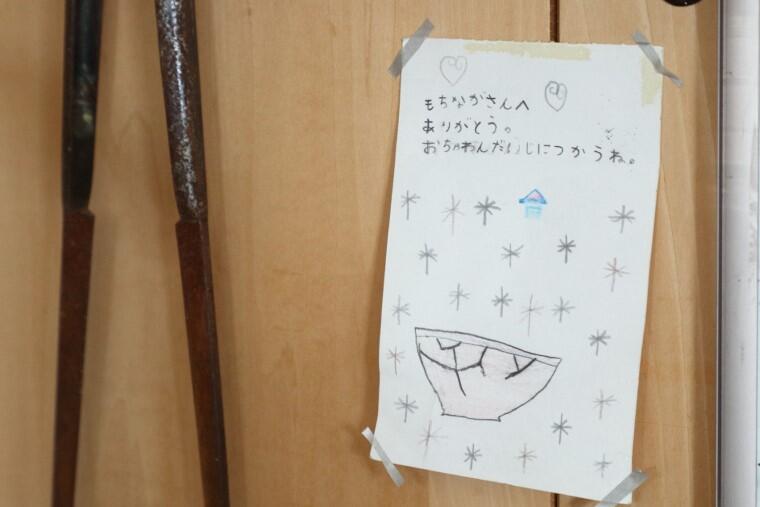 もちながさんへ
ありがとう。
おちゃわんだいじにつかうね。